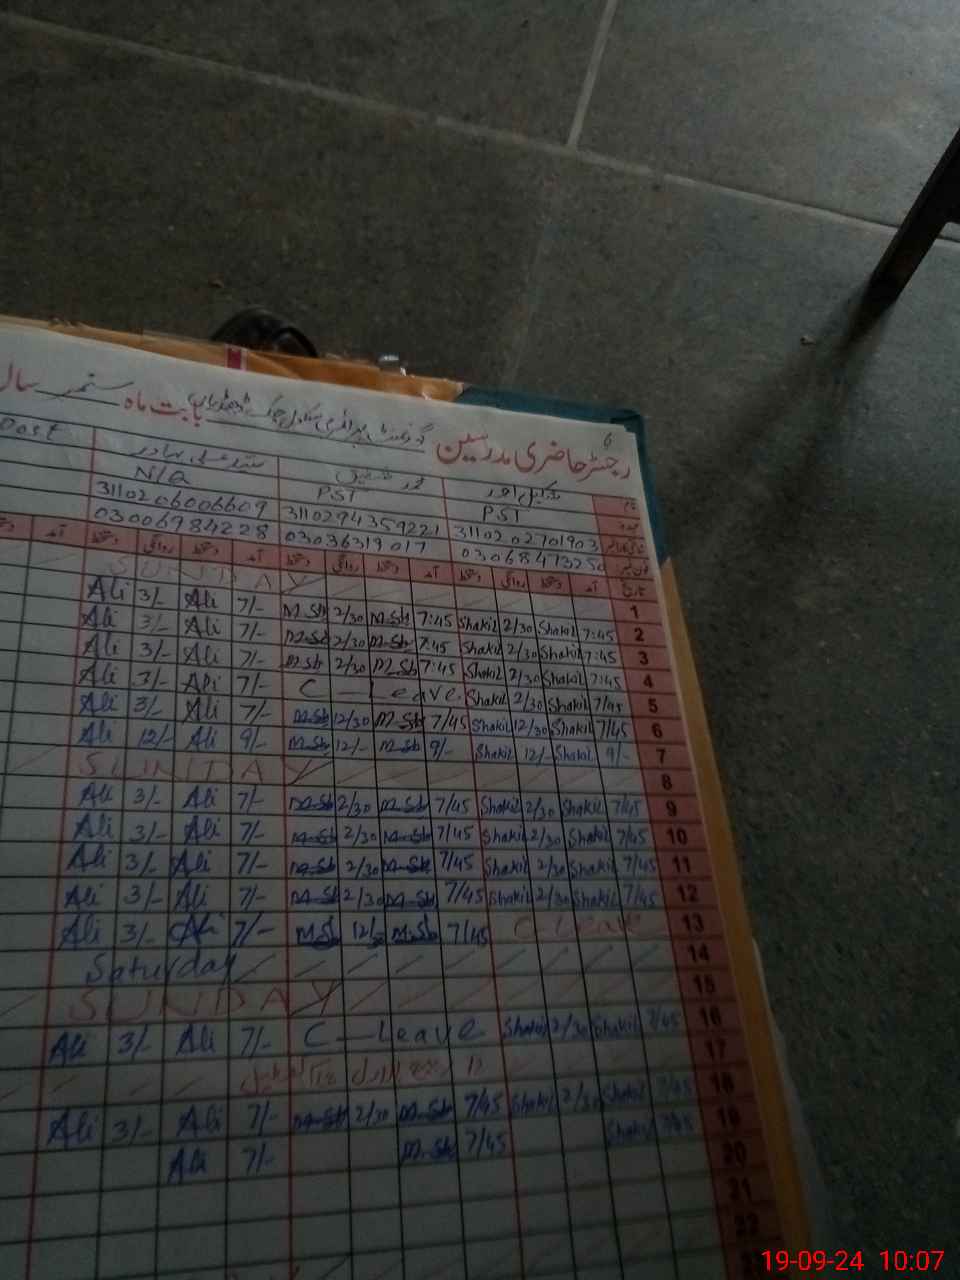 6
رجسٹر حاضری مدرسین گورنمنٹ پرائمری سکول چک بابت ماہ ستمبر سال
Post
N/Q PST PST
3110206006609 3110294359221 3110202701903
03006984228 03036319017 03068473250
SUNDAY 1
Ali 3/- Ali 7/- M.Sb 2/30 M.Sb 7:45 Shakil 2/30 Shakil 7:45 2
Ali 3/- Ali 7/- M.Sb 2/30 M.Sb 7:45 Shakil 2/30 Shakil 7:45 3
Ali 3/- Ali 7/- M.Sb 2/30 M.Sb 7:45 Shakil 2/30 Shakil 7:45 4
Ali 3/- Ali 7/- C - Leave Shakil 2/30 Shakil 7/45 5
Ali 3/- Ali 7/- M.Sb 12/30 M.Sb 7/45 Shakil 12/30 Shakil 7/45 6
Ali 12/- Ali 9/- M.Sb 12/- M.Sb 9/- Shakil 12/- Shakil 9/- 7
SUNDAY 8
Ali 3/- Ali 7/- M.Sb 2/30 M.Sb 7/45 Shakil 2/30 Shakil 7/45 9
Ali 3/- Ali 7/- M.Sb 2/30 M.Sb 7/45 Shakil 2/30 Shakil 7/45 10
Ali 3/- Ali 7/- M.Sb 2/30 M.Sb 7/45 Shakil 2/30 Shakil 7/45 11
Ali 3/- Ali 7/- M.Sb 2/30 M.Sb 7/45 Shakil 2/30 Shakil 7/45 12
Ali 3/- Ali 7/- M.Sb 12/- M.Sb 7/45 C - Leave 13
Saturday 14
SUNDAY 15
Ali 3/- Ali 7/- C - Leave Shakil 2/30 Shakil 7/45 16
17
Ali 3/- Ali 7/- M.Sb 2/30 M.Sb 7/45 Shakil 2/30 Shakil 7/45 18
Ali 7/- M.Sb 7/45 Shakil 7/45 19
20
21
22
19-09-24 10:07